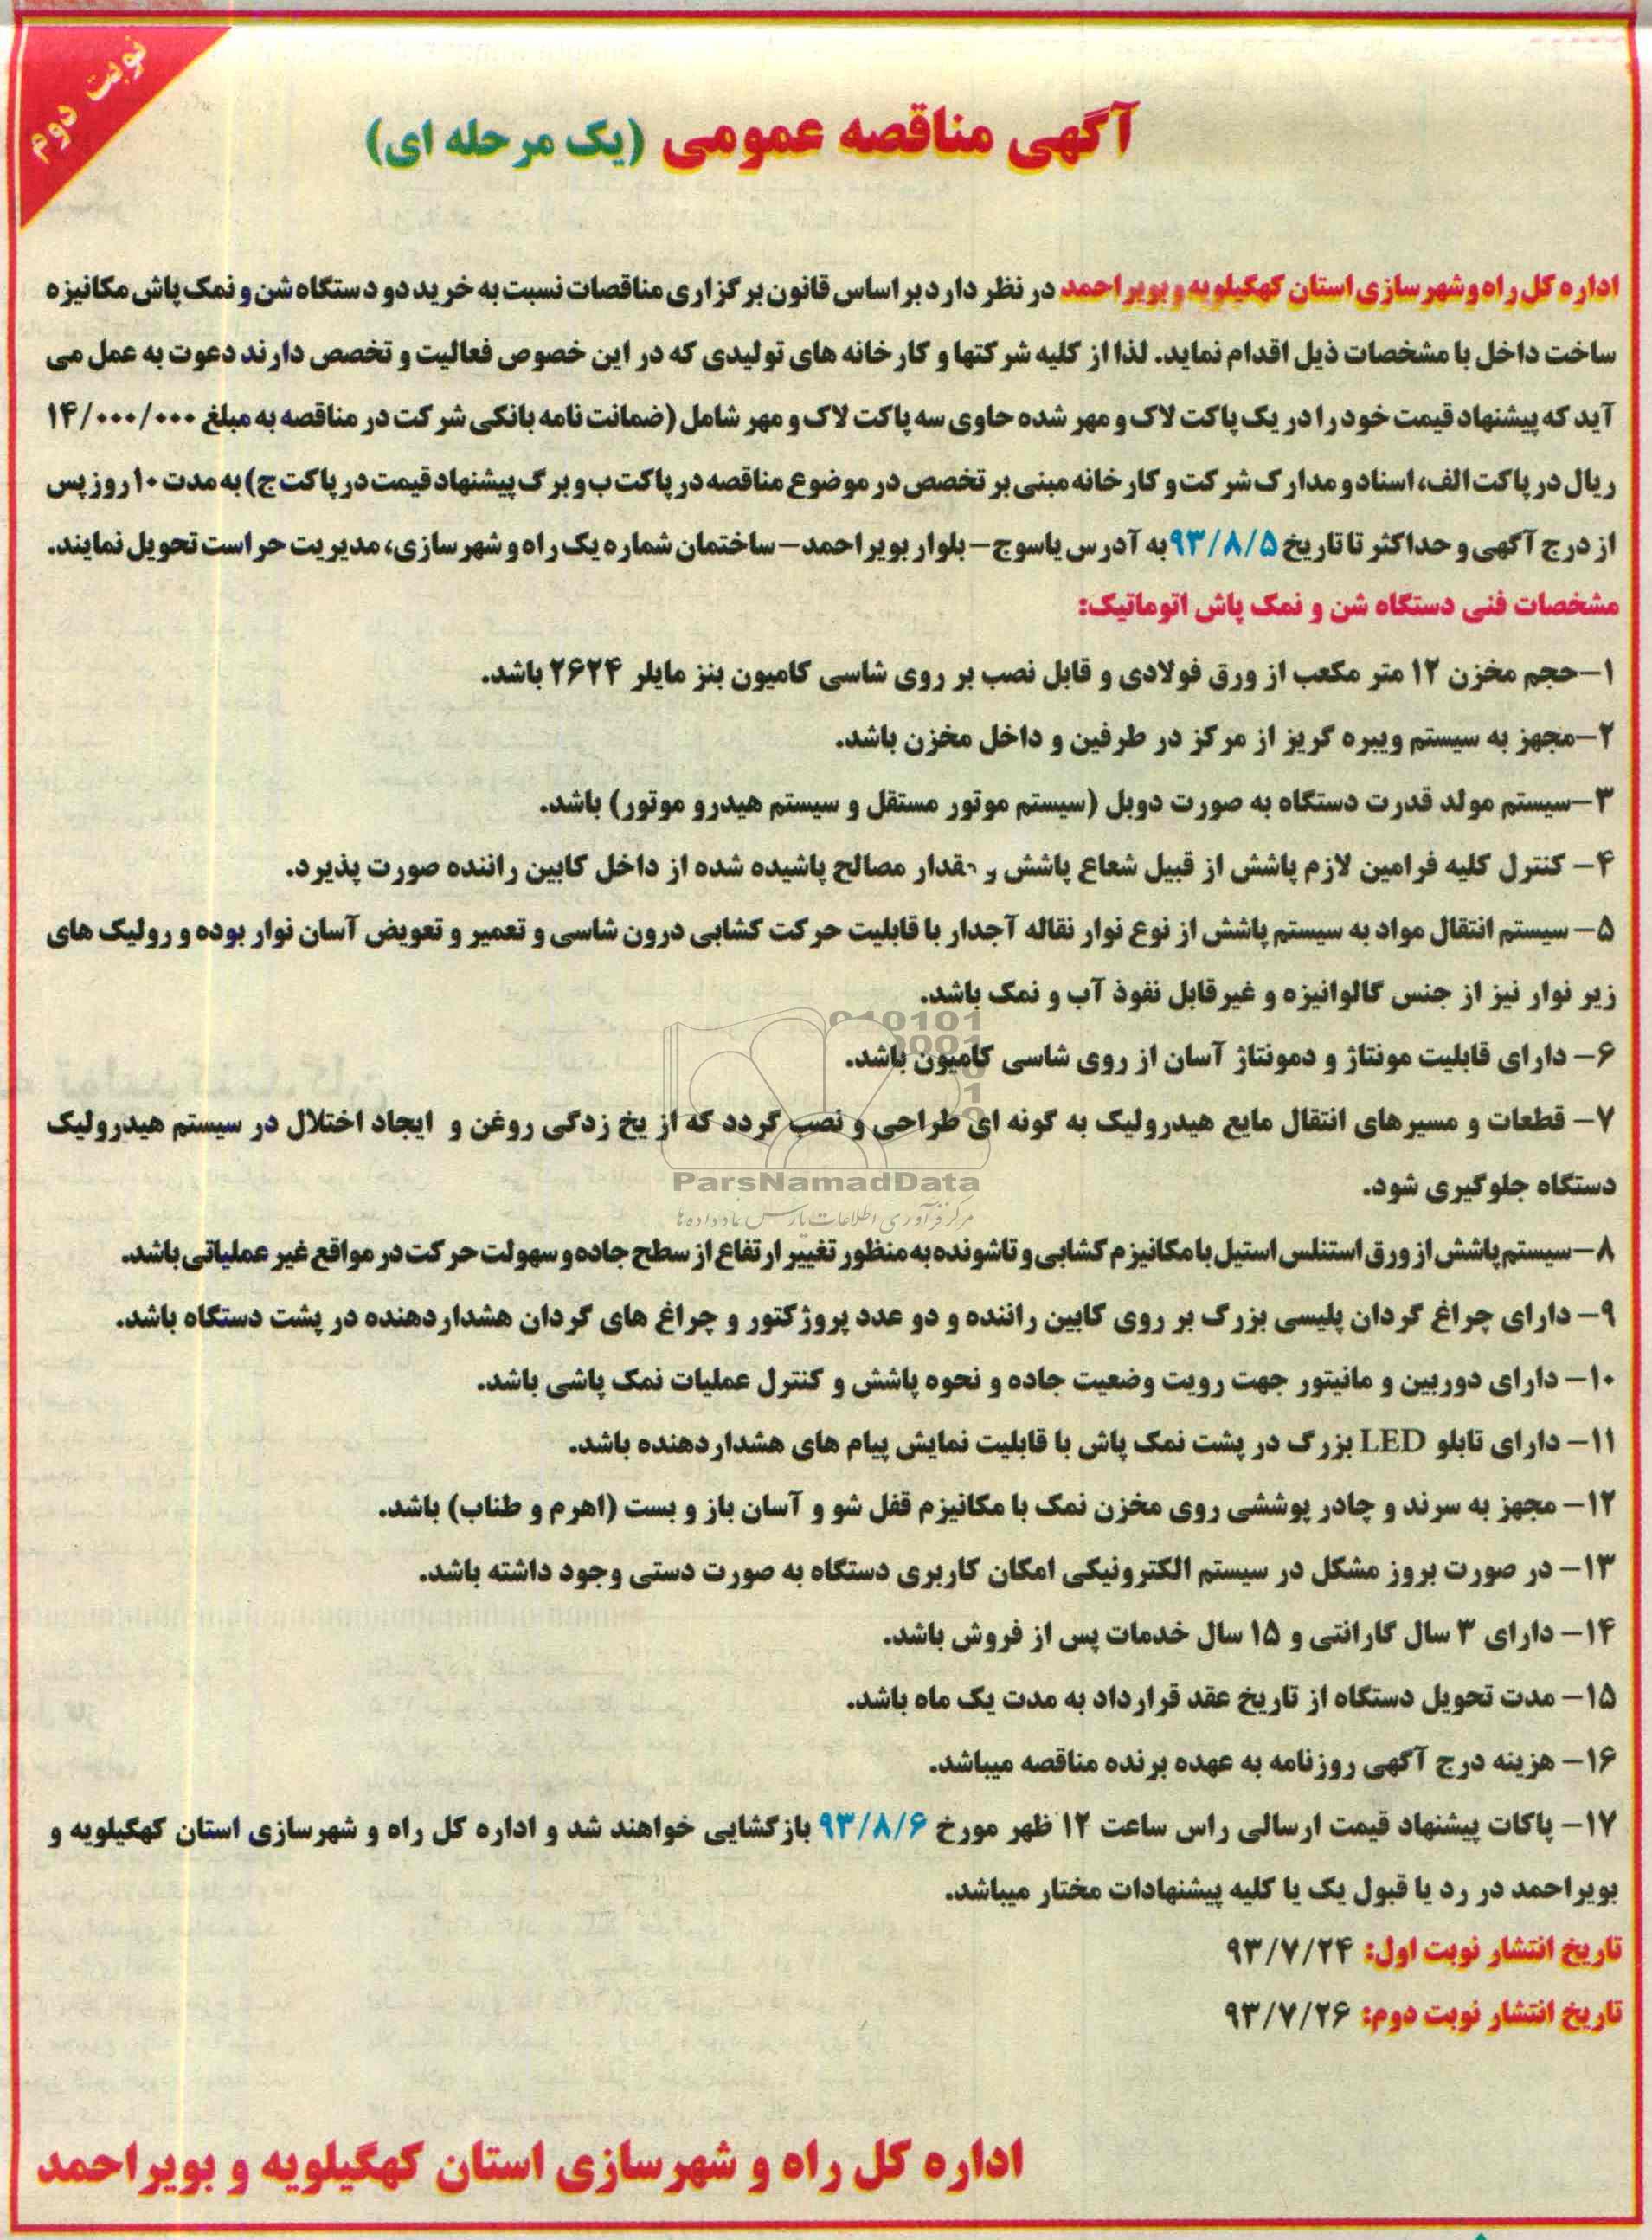 نوبت دوم
آگهی مناقصه عمومی (یک مرحله ای)
اداره کل راه و شهرسازی استان کهگیلویه و بویراحمد در نظر دارد بر اساس قانون برگزاری مناقصات نسبت به خرید دو دستگاه شن و نمک پاش مکانیزه
ساخت داخل با مشخصات ذیل اقدام نماید. لذا از کلیه شرکتها و کارخانه های تولیدی که در این خصوص فعالیت و تخصص دارند دعوت به عمل می
آید که پیشنهاد قیمت خود را در یک پاکت لاک و مهر شده حاوی سه پاکت لاک و مهر شامل (ضمانت نامه بانکی شرکت در مناقصه به مبلغ ۱۴/۰۰۰/۰۰۰
ریال در پاکت الف، اسناد و مدارک شرکت و کارخانه مبنی بر تخصص در موضوع مناقصه در پاکت ب و برگ پیشنهاد قیمت در پاکت ج) به مدت ۱۰ روز پس
از درج آگهی و حداکثر تا تاریخ ۹۳/۸/۵ به آدرس یاسوج – بلوار بویراحمد – ساختمان شماره یک راه و شهرسازی، مدیریت حراست تحویل نمایند.
مشخصات فنی دستگاه شن و نمک پاش اتوماتیک:
۱– حجم مخزن ۱۲ متر مکعب از ورق فولادی و قابل نصب بر روی شاسی کامیون بنز مایلر ۲۶۲۴ باشد.
۲– مجهز به سیستم ویبره گریز از مرکز در طرفین و داخل مخزن باشد.
۳– سیستم مولد قدرت دستگاه به صورت دوبل (سیستم موتور مستقل و سیستم هیدرو موتور) باشد.
۴– کنترل کلیه فرامین لازم پاشش از قبیل شعاع پاشش و مقدار مصالح پاشیده شده از داخل کابین راننده صورت پذیرد.
۵– سیستم انتقال مواد به سیستم پاشش از نوع نوار نقاله آجدار با قابلیت حرکت کشابی درون شاسی و تعمیر و تعویض آسان نوار بوده و رولیک های
زیر نوار نیز از جنس گالوانیزه و غیرقابل نفوذ آب و نمک باشد.
۶– دارای قابلیت مونتاژ و دمونتاژ آسان از روی شاسی کامیون باشد.
۷– قطعات و مسیرهای انتقال مایع هیدرولیک به گونه ای طراحی و نصب گردد که از یخ زدگی روغن و ایجاد اختلال در سیستم هیدرولیک
دستگاه جلوگیری شود.
ParsNamadData
مرکز فرآوری اطلاعات پارس نماد داده ها
۸– سیستم پاشش از ورق استنلس استیل با مکانیزم کشابی و تاشونده به منظور تغییر ارتفاع از سطح جاده و سهولت حرکت در مواقع غیر عملیاتی باشد.
۹– دارای چراغ گردان پلیسی بزرگ بر روی کابین راننده و دو عدد پروژکتور و چراغ های گردان هشداردهنده در پشت دستگاه باشد.
۱۰– دارای دوربین و مانیتور جهت رویت وضعیت جاده و نحوه پاشش و کنترل عملیات نمک پاشی باشد.
۱۱– دارای تابلو LED بزرگ در پشت نمک پاش با قابلیت نمایش پیام های هشداردهنده باشد.
۱۲– مجهز به سرند و چادر پوششی روی مخزن نمک با مکانیزم قفل شو و آسان باز و بست (اهرم و طناب) باشد.
۱۳– در صورت بروز مشکل در سیستم الکترونیکی امکان کاربری دستگاه به صورت دستی وجود داشته باشد.
۱۴– دارای ۳ سال گارانتی و ۱۵ سال خدمات پس از فروش باشد.
۱۵– مدت تحویل دستگاه از تاریخ عقد قرارداد به مدت یک ماه باشد.
۱۶– هزینه درج آگهی روزنامه به عهده برنده مناقصه میباشد.
۱۷– پاکات پیشنهاد قیمت ارسالی راس ساعت ۱۲ ظهر مورخ ۹۳/۸/۶ بازگشایی خواهند شد و اداره کل راه و شهرسازی استان کهگیلویه و
بویراحمد در رد یا قبول یک یا کلیه پیشنهادات مختار میباشد.
تاریخ انتشار نوبت اول: ۹۳/۷/۲۴
تاریخ انتشار نوبت دوم: ۹۳/۷/۲۶
اداره کل راه و شهرسازی استان کهگیلویه و بویراحمد